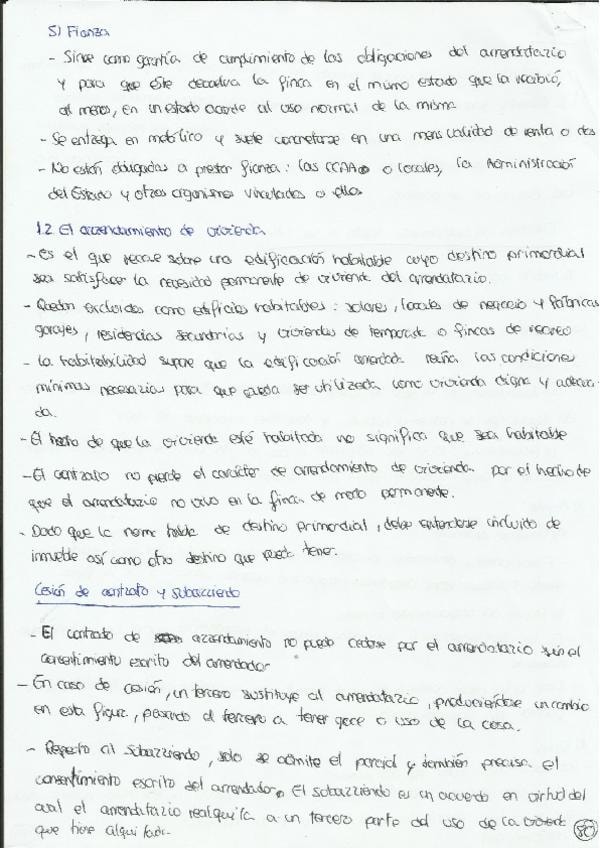 5) Fianza
- Sirve como garantía de cumplimiento de las obligaciones del arrendatario
y para que éste devuelva la finca en el mismo estado que la recibió,
al menos, en un estado acorde al uso normal de la misma
- Se entrega en metálico y suele concretarse en una mensualidad de renta o dos
- No están obligadas a prestar fianza: las CCAA o locales, la Administración
del Estado y otros organismos vinculados a ellos
1.2 El arrendamiento de vivienda
- Es el que recae sobre una edificación habitable cuyo destino primordial
sea satisfacer la necesidad permanente de vivienda del arrendatario.
- Quedan excluidos como edificios habitables: solares, locales de negocio y
garajes, residencias secundarias y viviendas de temporada o fincas de recreo
- La habitabilidad supone que la edificación arrendada reúna las condiciones
mínimas necesarias para que pueda ser utilizada como vivienda digna y adecua
da.
- El hecho de que la vivienda esté habitada no significa que sea habitable
- El contrato no pierde el carácter de arrendamiento de vivienda por el hecho de
que el arrendatario no viva en la finca de modo permanente.
- Dado que la norma habla de destino primordial, debe entenderse incluido de
inmueble así como otro destino que pueda tener.
Cesión de contrato y subarriendo
- El contrato de arrendamiento no puede cederse por el arrendatario sin el
consentimiento escrito del arrendador
- En caso de cesión, un tercero sustituye al arrendatario, produciéndose un cambio
en esta figura, pasando el tercero a tener goce o uso de la cosa.
- Respecto al subarriendo, solo se admite el parcial y también precisa el
consentimiento escrito del arrendador. El subarriendo es un acuerdo en virtud del
cual el arrendatario realquila a un tercero parte del uso de la vivienda
que tiene alquilada.
80